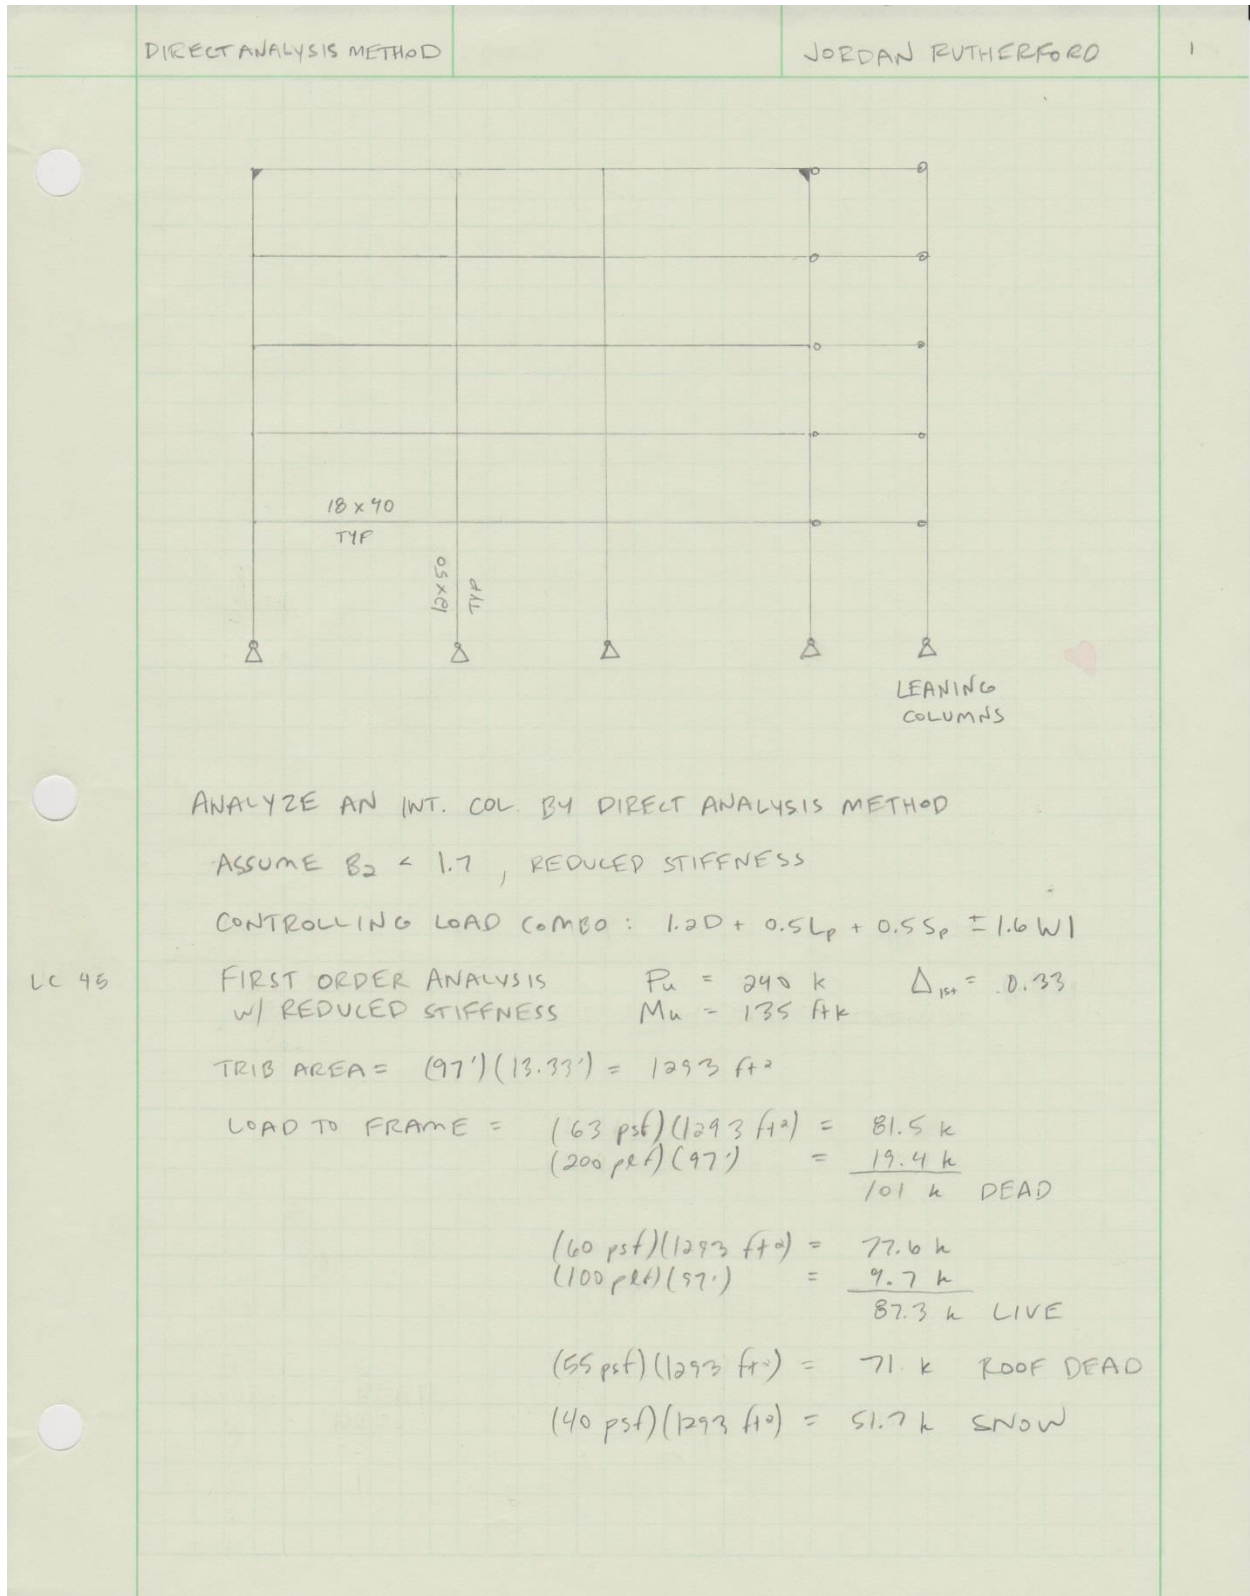 DIRECT ANALYSIS METHOD
JORDAN RUTHERFORD
1
18 x 40
TYP
12x50
TYP
LEANING
COLUMNS
ANALYZE AN INT. COL. BY DIRECT ANALYSIS METHOD
ASSUME B2 < 1.7, REDUCED STIFFNESS
CONTROLLING LOAD COMBO: 1.2D + 0.5Lp + 0.5Sp ± 1.6W1
LC 45 FIRST ORDER ANALYSIS Pu = 240 k Δ1st = 0.33
W/ REDUCED STIFFNESS Mu = 135 ftk
TRIB AREA = (97')(13.33') = 1293 ft²
LOAD TO FRAME = (63 psf)(1293 ft²) = 81.5 k
(200 plf)(97') = 19.4 k
101 k DEAD
(60 psf)(1293 ft²) = 77.6 k
(100 plf)(97') = 9.7 k
87.3 k LIVE
(55 psf)(1293 ft²) = 71. k ROOF DEAD
(40 psf)(1293 ft²) = 51.7 k SNOW